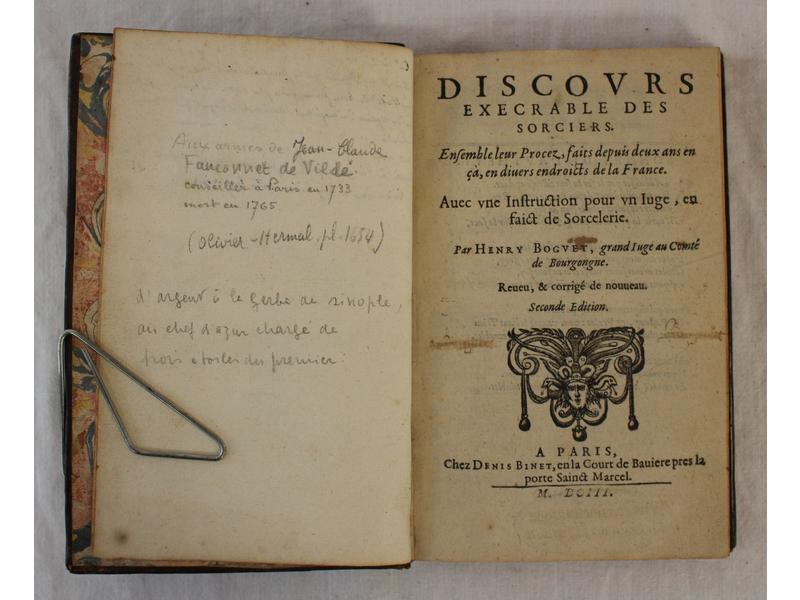 Aux armes de Jean-Claude
Fauconnet de Vildé
conseiller à Paris en 1733
mort en 1765
(Olivier-Hermal, pl. 1654)
d'argent à la gerbe de sinople,
au chef d'azur chargé de
trois étoiles du premier.
DISCOVRS
EXECRABLE DES
SORCIERS.
Ensemble leur Procez, faits depuis deux ans en
çà, en diuers endroicts de la France.
Auec vne Instruction pour vn Iuge, en
faict de Sorcelerie.
Par HENRY BOGVET, grand Iuge au Comté
de Bourgongne.
Reueu, & corrigé de nouueau.
Seconde Edition.
A PARIS,
Chez DENIS BINET, en la Court de Bauiere pres la
porte Sainct Marcel.
M. DCIII.